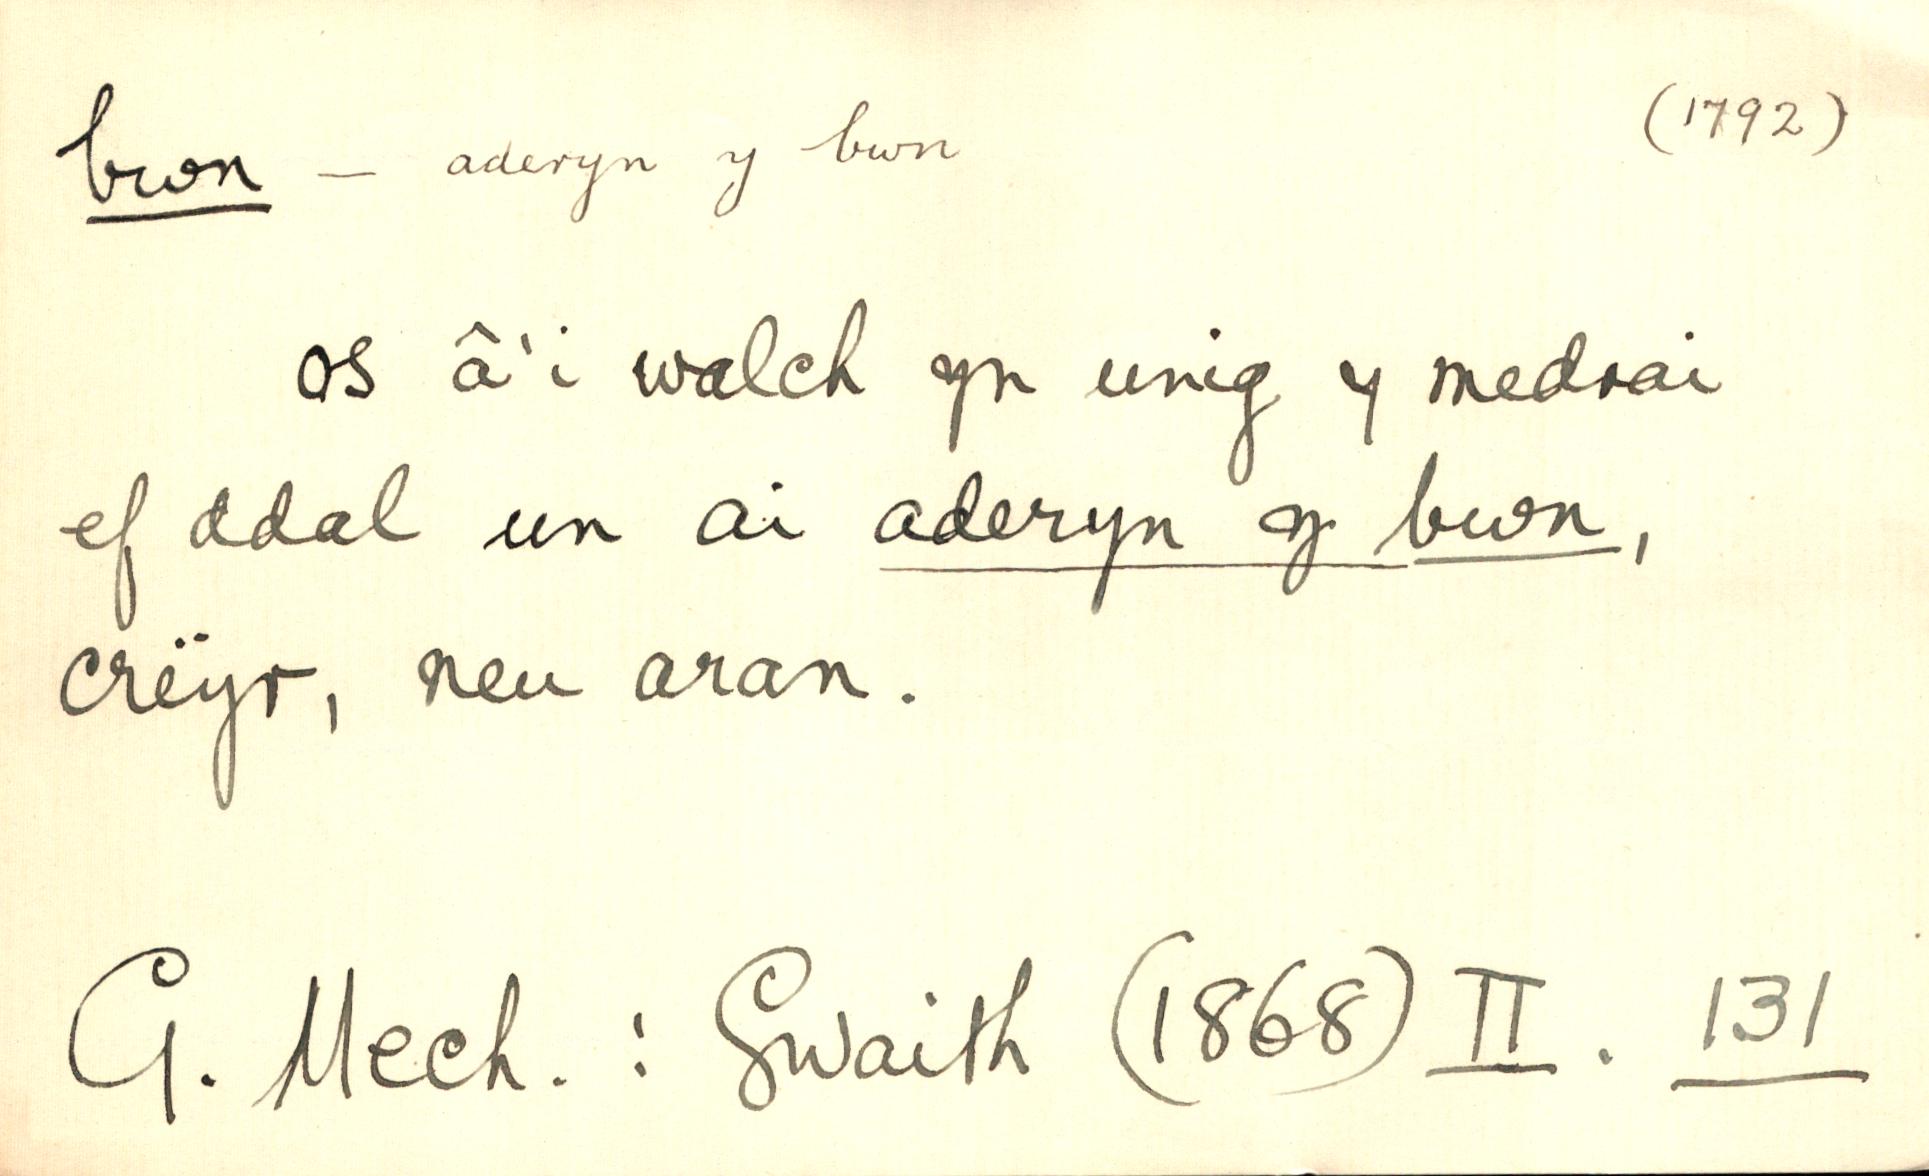 bwn — aderyn y bwn (1792)
os â'i walch yn unig y medrai
ef ddal un ai aderyn y bwn,
crëyr, neu aran.
G. Mech. : Gwaith (1868) II. 131